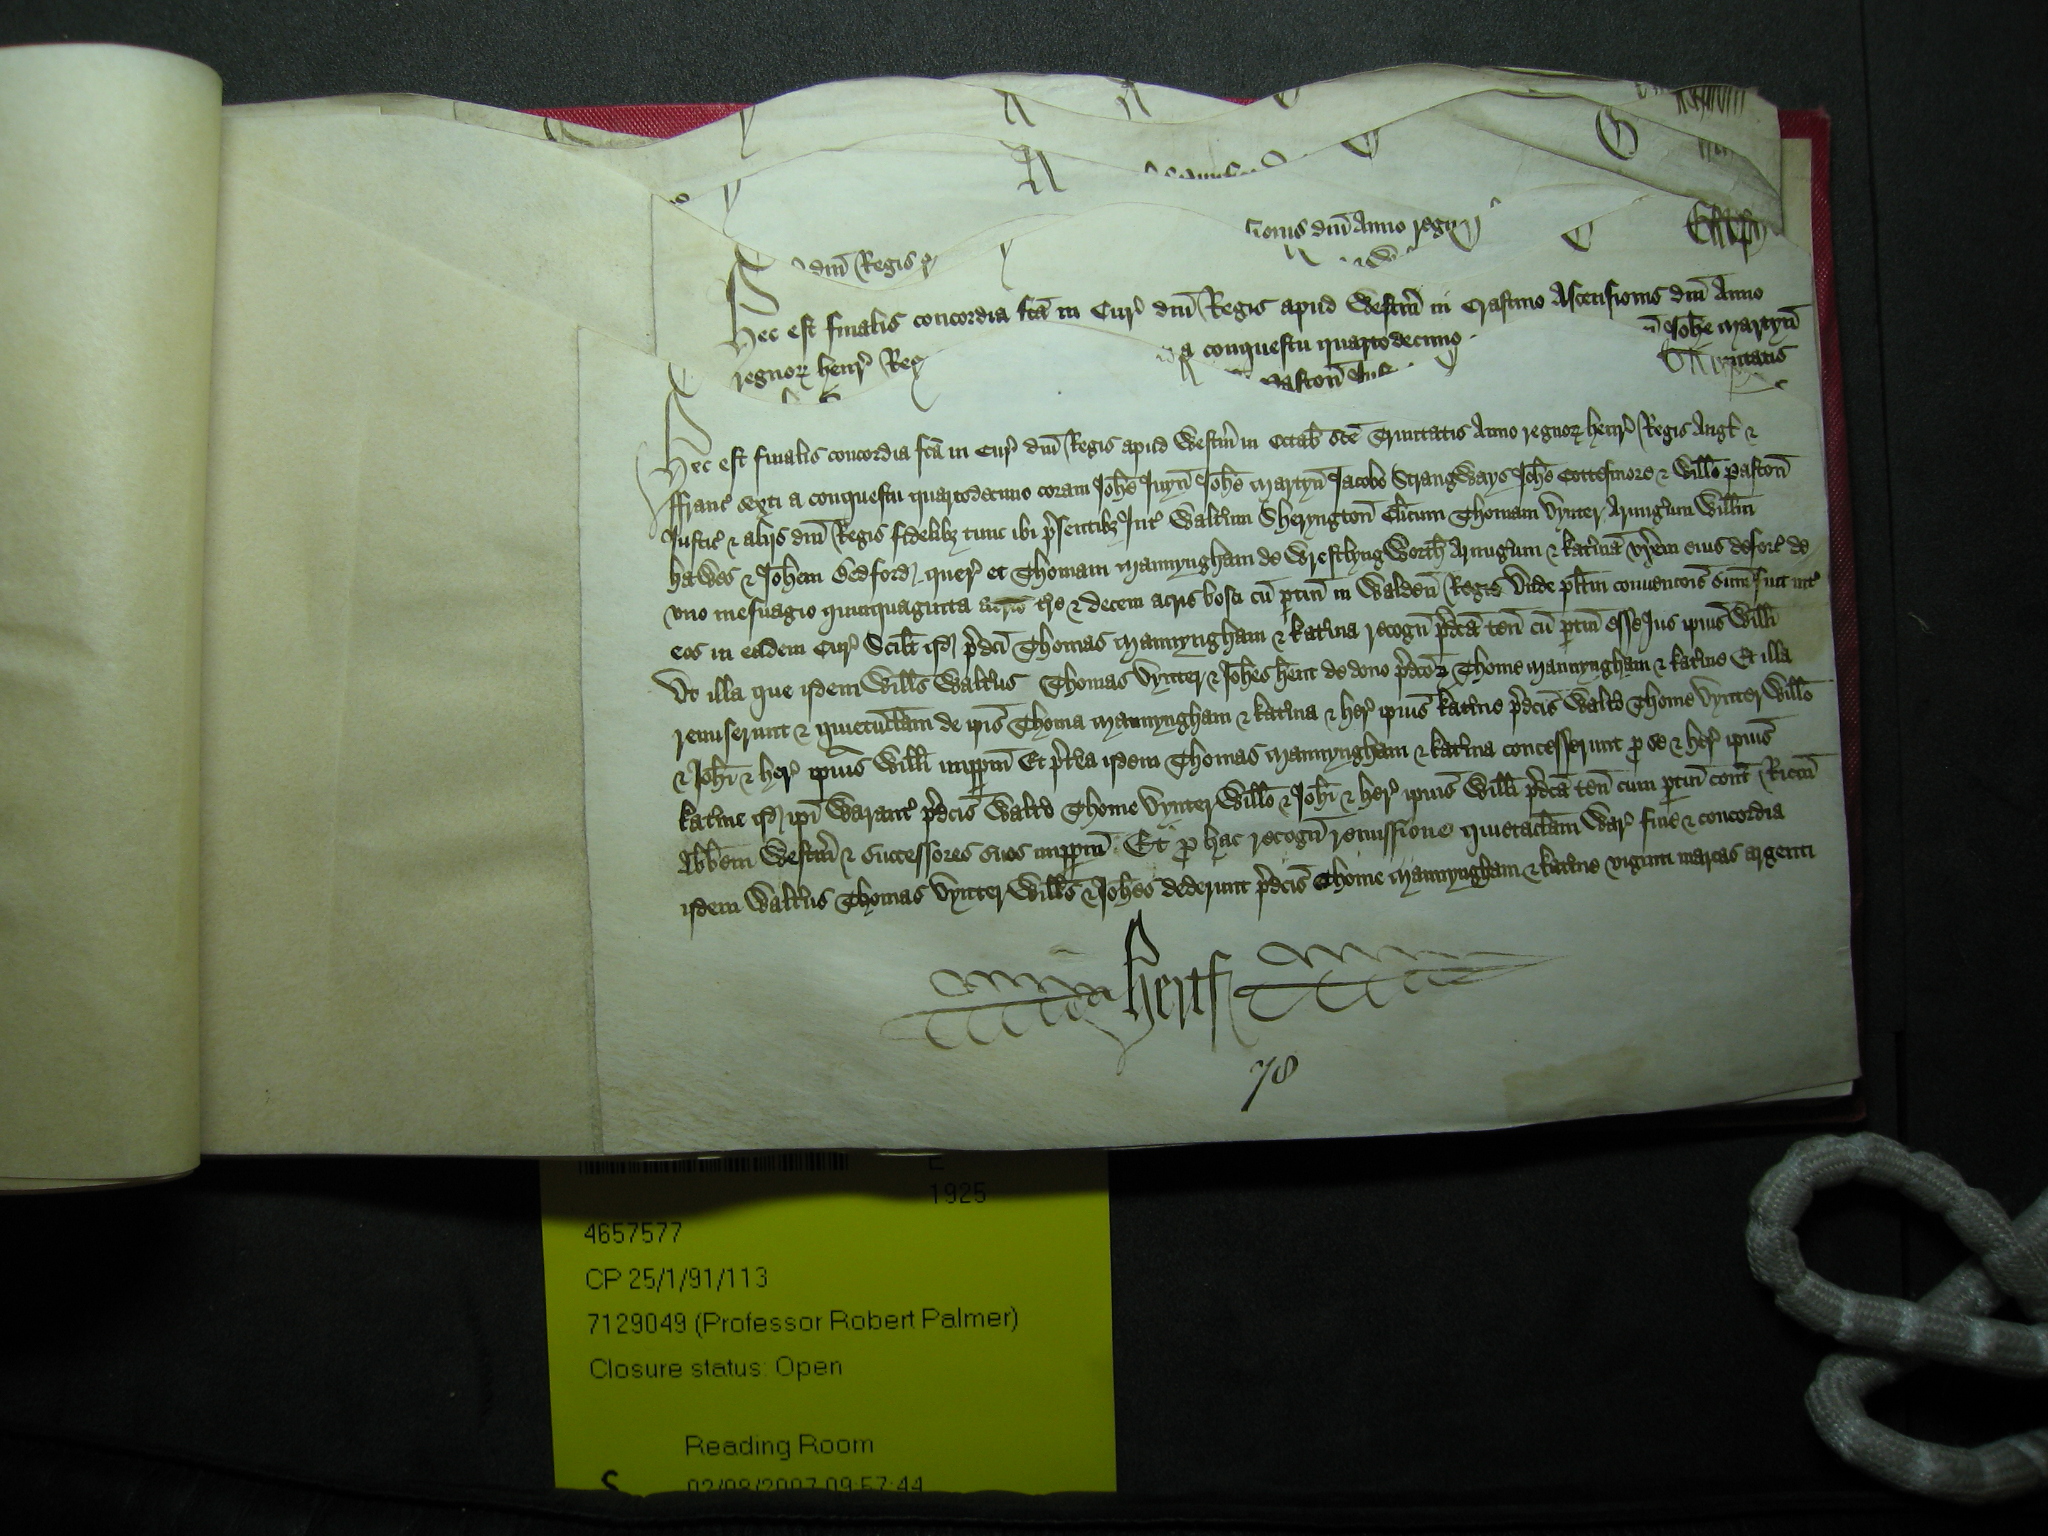 dm̄ Regis
sionis dm̄ Anno regn
Hec est finalis concordia fcā in Cur' dm̄ Regis apud Westm̄ in Crastino Ascensionis dm̄ Anno
regnoꝝ henr' Reg
a conquestu quartodecimo
Joh̄e Martyn̄
Paston̄
Trinitatis
Hec est finalis concordia fcā in Cur' dm̄ Regis apud Westm̄ in Octab̄ sc̄e Trinitatis Anno regnoꝝ henr' Regis Angl' ⁊
ffranc' sexti a conquestu quartodecimo coram Joh̄e Juyn̄ Joh̄e Martyn̄ Jacobo Strangways Joh̄e Cottesmore ⁊ Willo Paston̄
Justic' ⁊ alijs dm̄ Regis fidelibꝫ tunc ibi p'sentibꝫ Int' Walt'um Sheryngton̄ Cl'icum Thomam Vynter Armig'um Willm̄
hawes ⁊ Joh̄em Bedford quer' et Thomam Mannyngham de Wrestlyngworth Armig'um ⁊ kat'inā vx'em eius deforc' de
vno mesuagio quinquaginta acris t're ⁊ decem acris bosci cū ptin̄ in Walden̄ Regis Vnde pl'itm̄ convencōis sum̄ fuit int'
eos in eadem Cur' Scil't qd p'dc̄i Thomas Mannyngham ⁊ kat'ina recogn̄ p'dc̄a ten̄ cū ptin̄ esse Jus ipius Willi
Vt illa que ijdem Will's Walt'us Thomas Vynter ⁊ Joh̄es hent de dono p'dc̄oꝝ Thome Mannyngham ⁊ kat'ine Et illa
remiserunt ⁊ quietuclam̄ de ip̄is Thoma Mannyngham ⁊ kat'ina ⁊ her' ipius kat'ine p'dc̄is Walt'o Thome Vynter Willo
⁊ Joh̄i ⁊ her' ipius Willi imppm̄ Et p't'ea ijdem Thomas Mannyngham ⁊ kat'ina concesserunt p se ⁊ her' ipius
kat'ine qd ip̄i Warant' p'dc̄is Walt'o Thome Vynter Willo ⁊ Joh̄i ⁊ her' ipius Willi p'dc̄a ten̄ cum ptin̄ cont' Ricm̄
Abb̄em Westm̄ ⁊ successores suos imppm̄ Et p hac recogn̄ remissione quietaclam̄ War' fine ⁊ concordia
ijdem Walt'us Thomas Vynter Will's ⁊ Joh̄es dederunt p'dc̄is Thome Mannyngham ⁊ kat'ine viginti marcas argenti
hertf
78
E
1925
4657577
CP 25/1/91/113
7129049 (Professor Robert Palmer)
Closure status: Open
Reading Room
S
02/08/2007 09:57:44